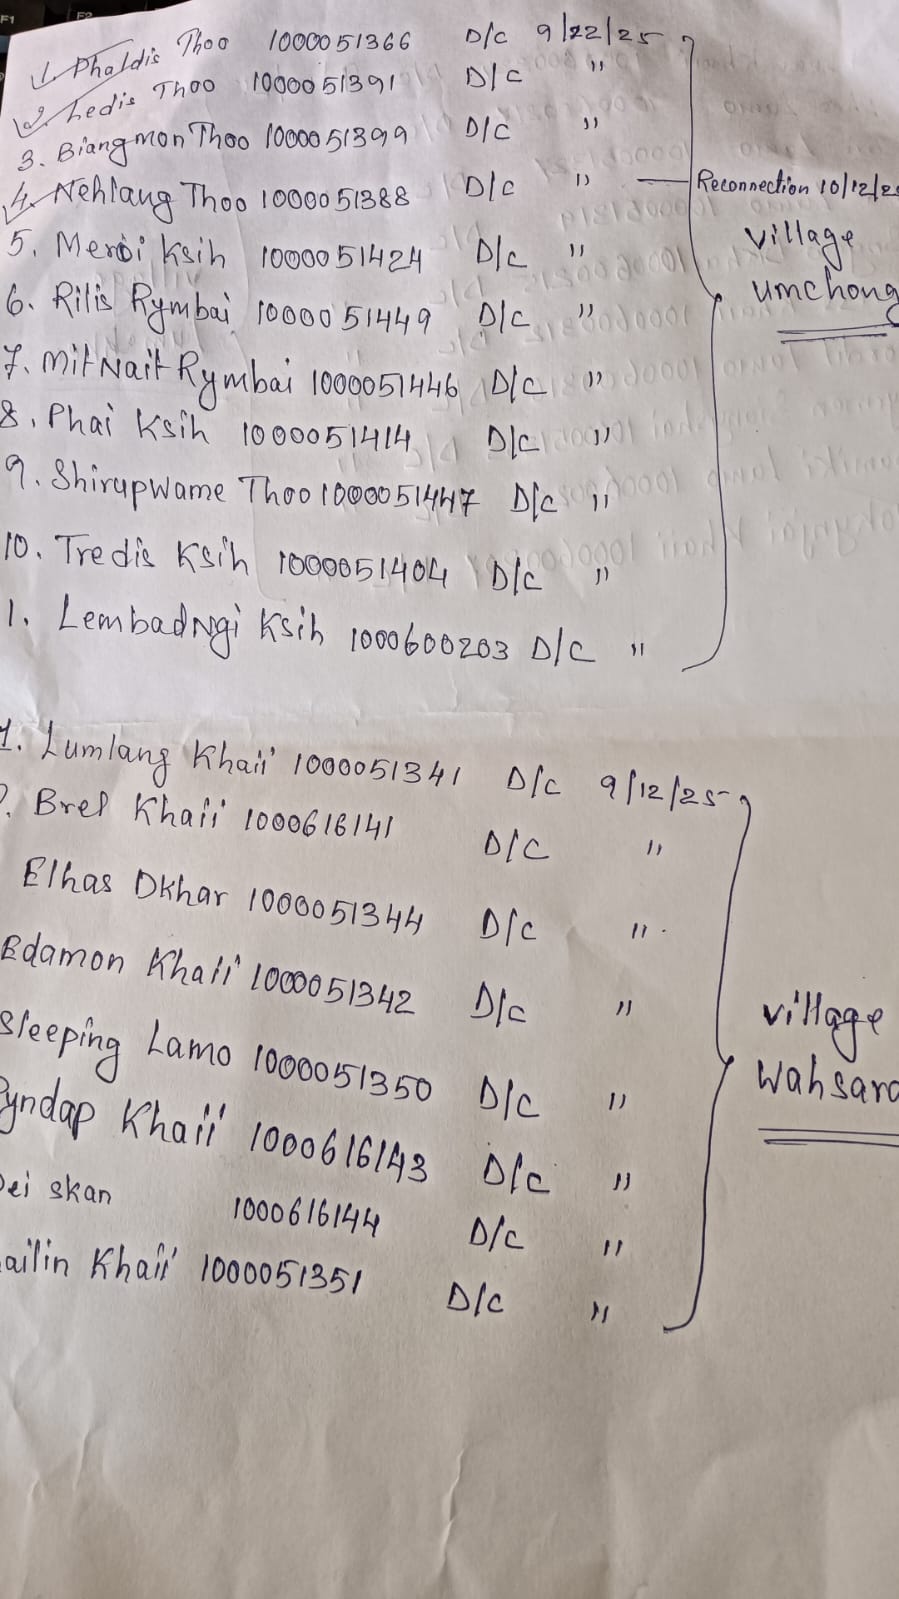 1. Phaldis Thoo 1000051366 D/c 9/22/25
2. Ledis Thoo 1000051391 D/C "
3. Biangmon Thoo 1000051399 D/C "
4. Nehlang Thoo 1000051388 D/c " — Reconnection 10/12/2
5. Meroi Ksih 1000051424 D/c " village
6. Rilis Rymbai 1000051449 D/c " umchong
7. Mit Nait Rymbai 1000051446 D/C "
8. Phai Ksih 1000051414 D/c "
9. Shirupwame Thoo 1000051447 D/c "
10. Tredis Ksih 1000051404 D/c "
1. Lembad Ngi Ksih 1000600203 D/C "
1. Lumlang Khaii 1000051341 D/c 9/12/25
2. Brel Khaii 1000616141 D/C "
Elhas Dkhar 1000051344 D/c "
Edamon Khaii 1000051342 D/c " village
Sleeping Lamo 1000051350 D/c " Wahsara
Pyndap Khaii 1000616143 D/c "
Dei skan 1000616144 D/c "
ailin Khaii 1000051351 D/c "